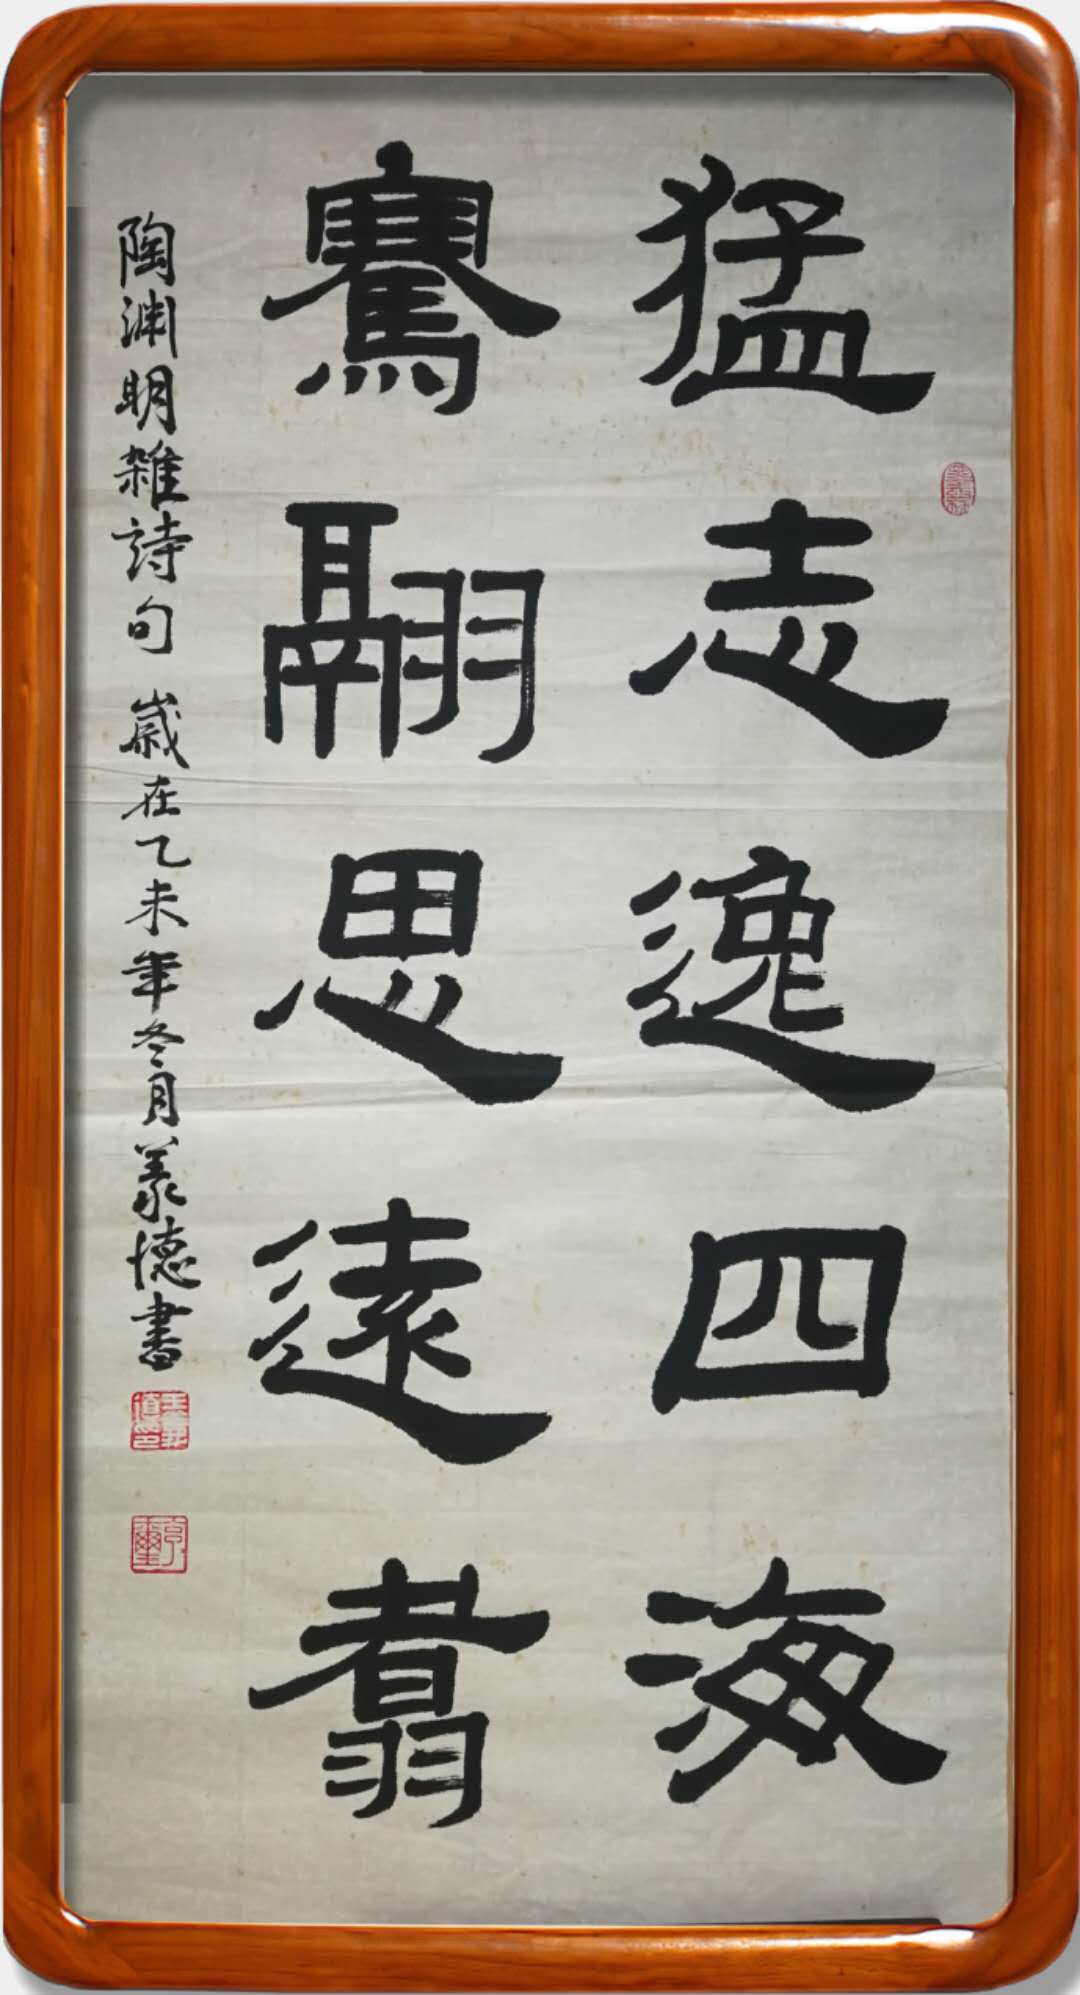 猛志逸四海
騫翮思遠翥
陶渊明雜詩句 歲在乙未年冬月義德書